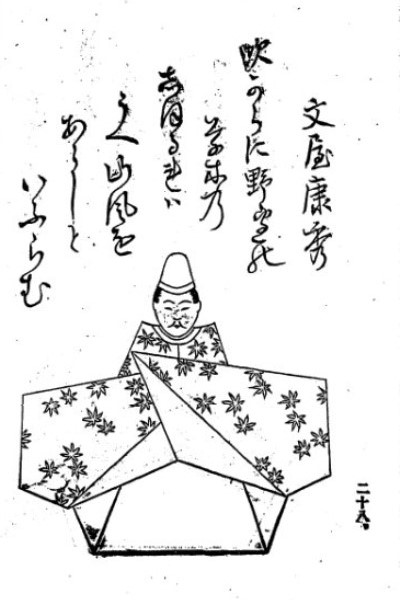 文屋康秀
吹からに野邊の
草木乃
志ほるれハ
うへ山風を
あらしと
いふらむ
二十八